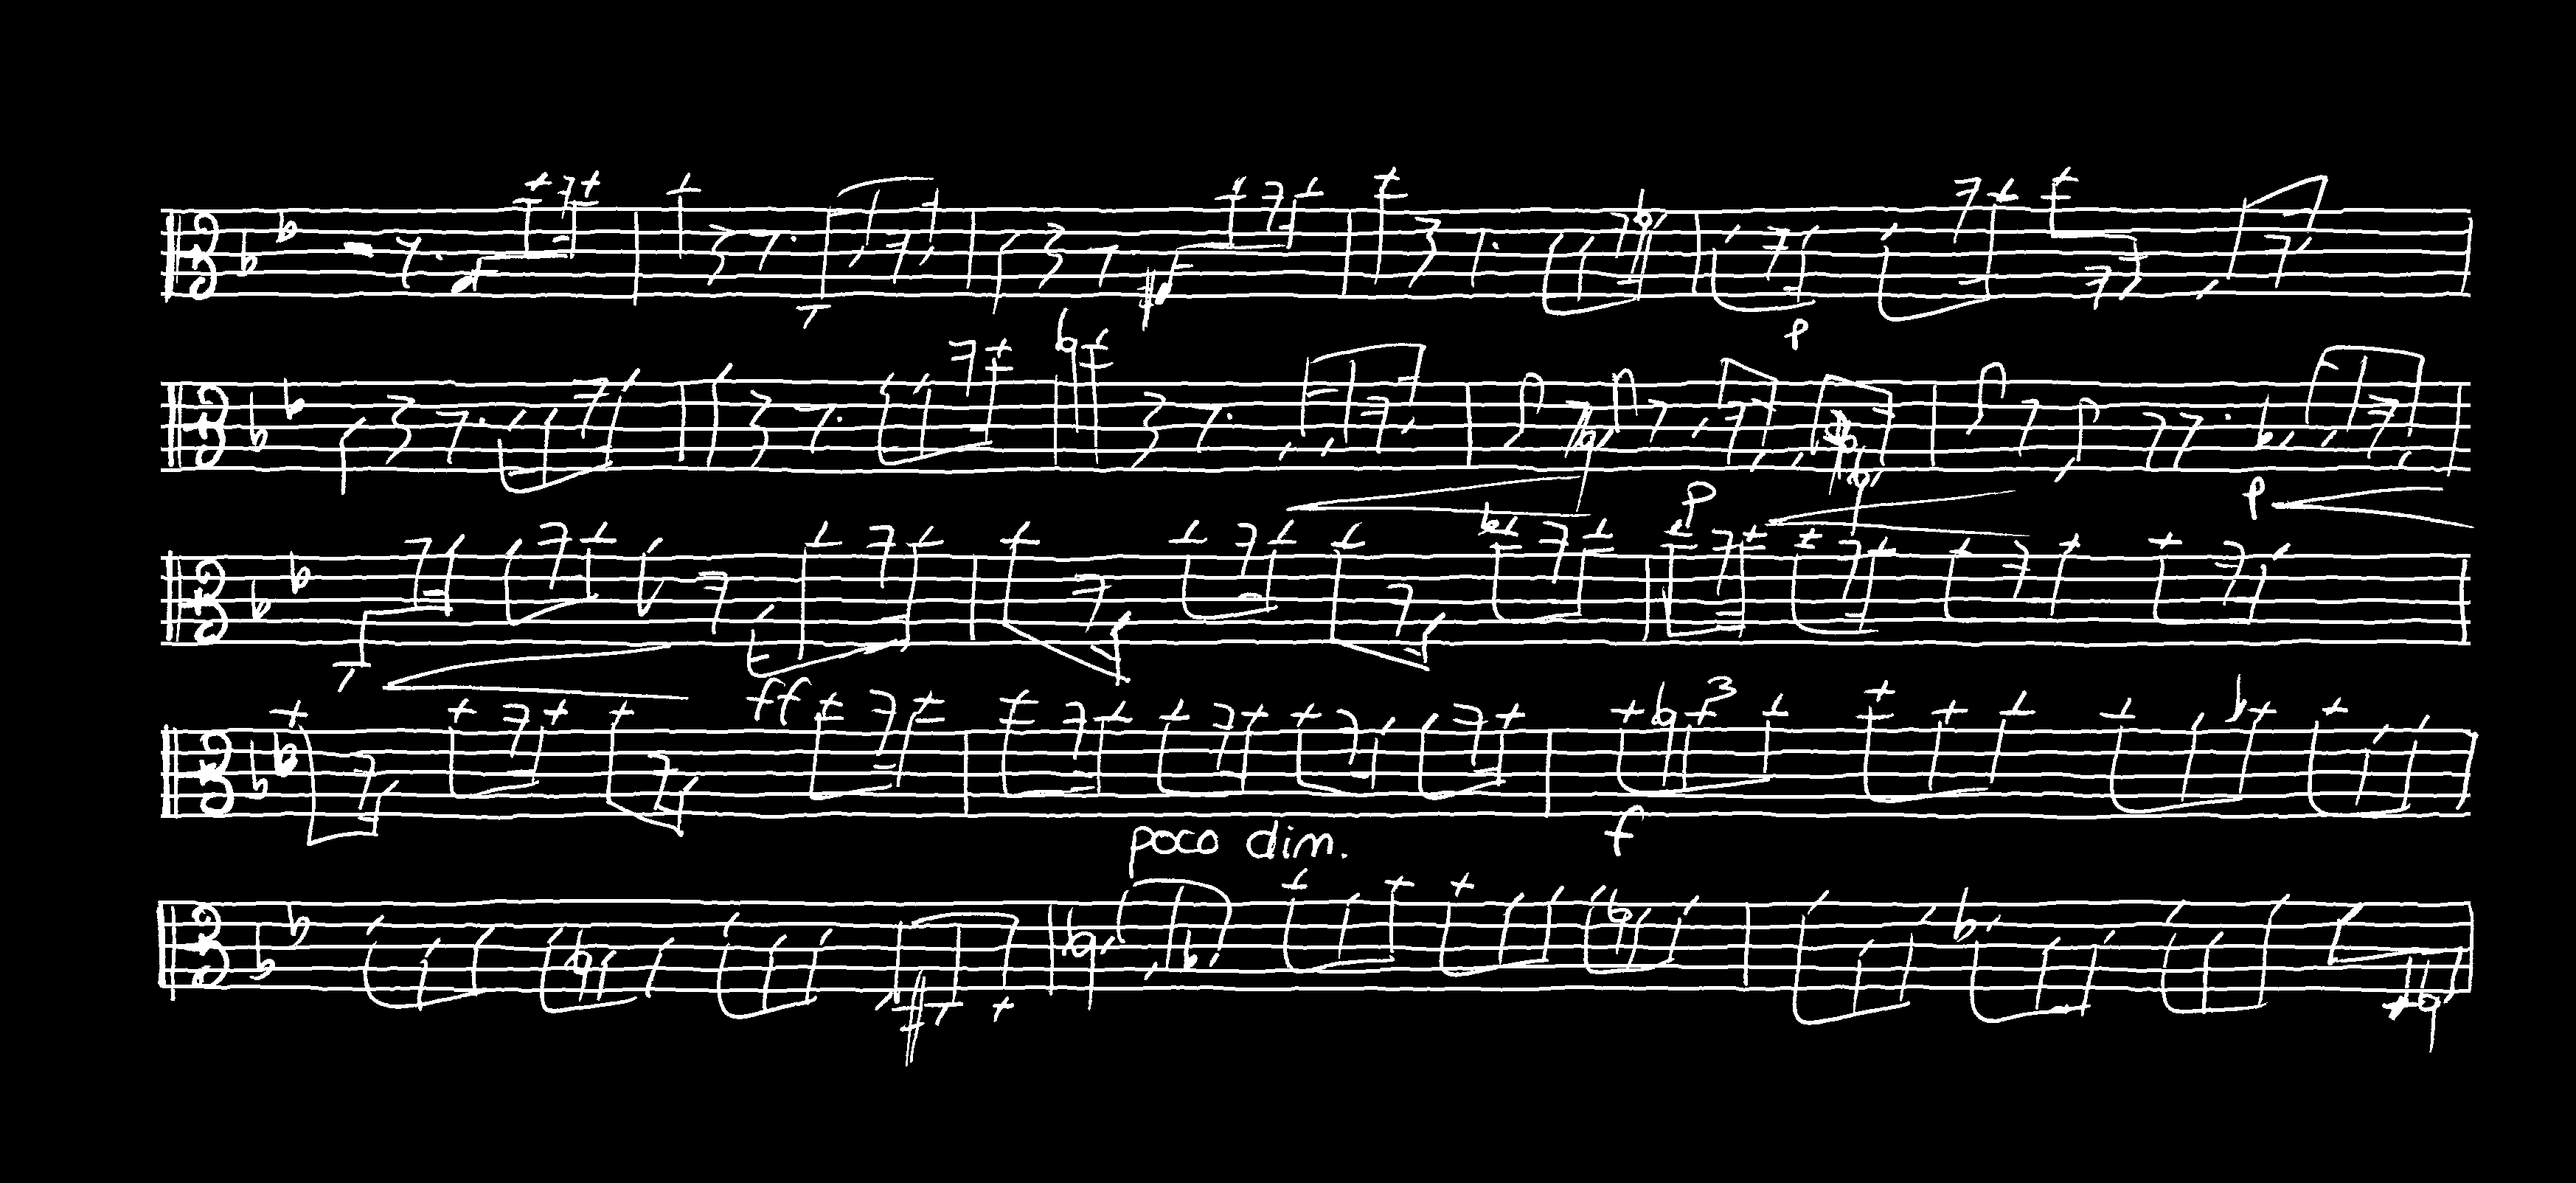 p
p p
ff 3
poco dim. f